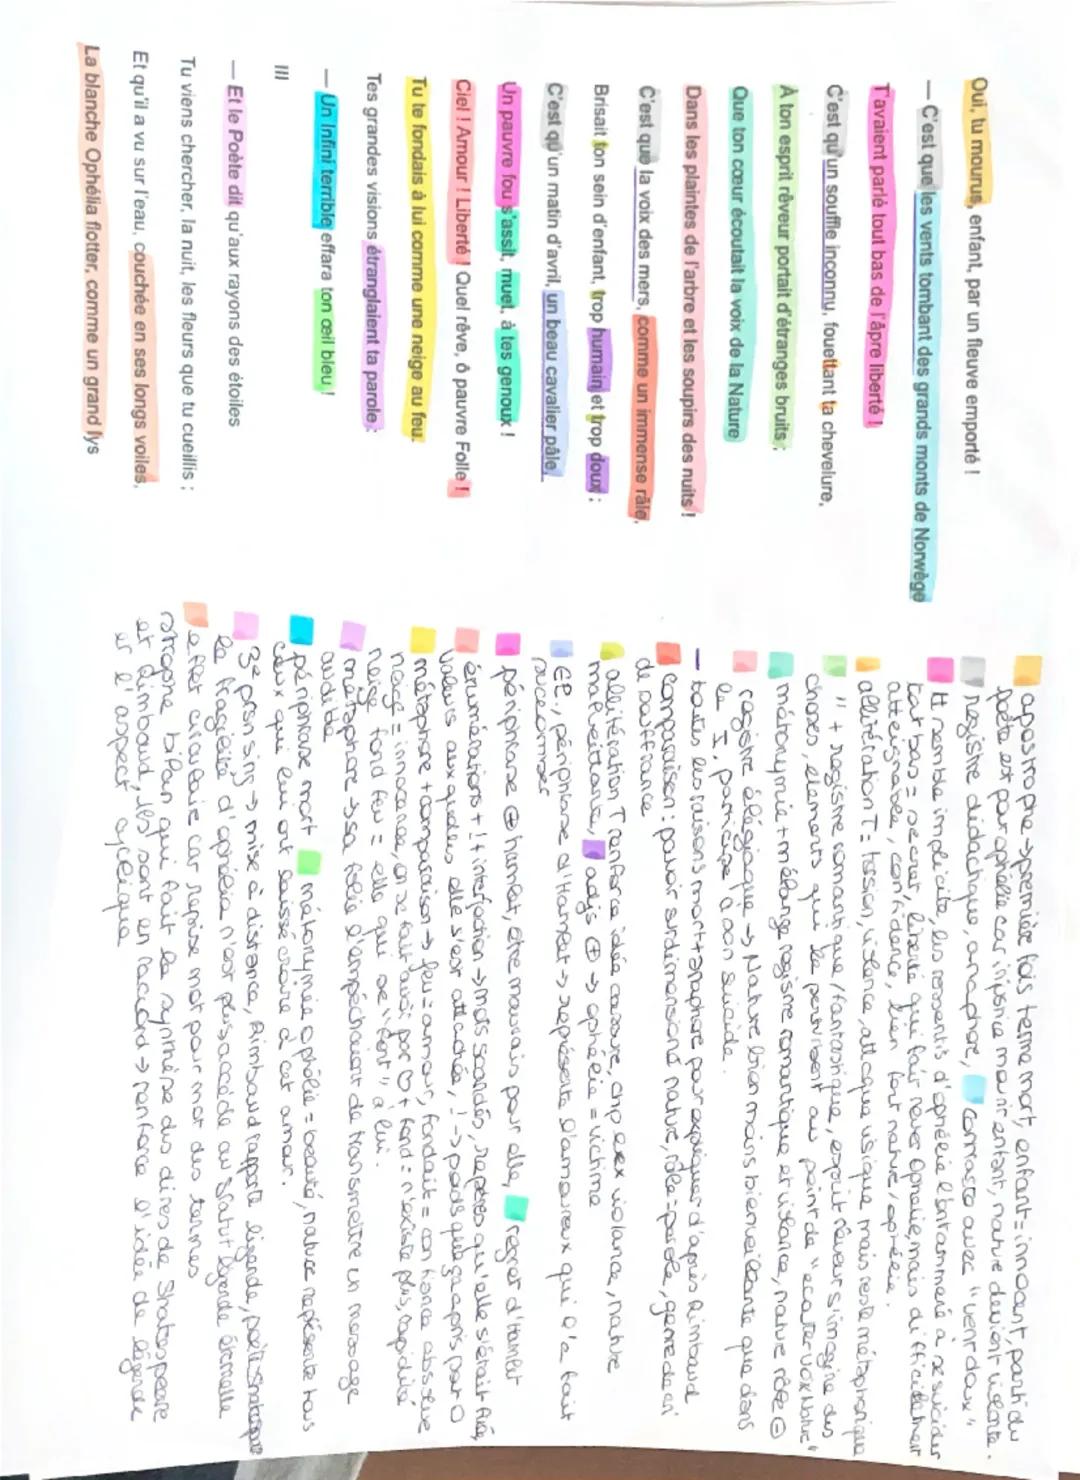 Oui, tu mourus, enfant, par un fleuve emporté !
— C'est que les vents tombant des grands monts de Norwège
T'avaient parlé tout bas de l'âpre liberté !
C'est qu'un souffle inconnu, fouettant ta chevelure,
À ton esprit rêveur portait d'étranges bruits ;
Que ton cœur écoutait la voix de la Nature
Dans les plaintes de l'arbre et les soupirs des nuits !
C'est que la voix des mers, comme un immense râle,
Brisait ton sein d'enfant, trop humain et trop doux ;
C'est qu'un matin d'avril, un beau cavalier pâle,
Un pauvre fou s'assit, muet, à tes genoux !
Ciel ! Amour ! Liberté ! Quel rêve, ô pauvre Folle !
Tu te fondais à lui comme une neige au feu.
Tes grandes visions étranglaient ta parole ;
— Un Infini terrible effara ton œil bleu !
III
— Et le Poète dit qu'aux rayons des étoiles
Tu viens chercher, la nuit, les fleurs que tu cueillis ;
Et qu'il a vu sur l'eau, couchée en ses longs voiles,
La blanche Ophélia flotter, comme un grand lys
apostrophe → première fois terme mort, enfant = innocent, parti du
poète est pour ophélie car injustice mourir enfant, nature devient violente.
registre didactique, anaphore, contraste avec "vent doux"
semble implicite, les ressentis d'ophélie l'ont ammené à se suicider
tout bas = secret, liberté qui fait rêver Ophélie, mais difficilement
atteignable, confidence, lien fort nature/ophélie.
allitération T = tension, violence, attaque physique mais reste métaphorique
" + registre romantique/fantastique, esprit rêveur s'imagine des
choses, éléments qui la perturbent au point de "écouter voix Nature"
métonymie + mélange registre romantique et violence, nature rôle ⊖
registre élégiaque → Nature bien moins bienveillante que dans
le I, participe à son suicide.
— toutes les raisons mort = anaphore pour expliquer d'après Rimbaud
comparaison : pouvoir surdimensioné nature, râle = parole, genre de cri
de souffrance
allitération T renforce idée cassure, chp lex violence, nature
malveillante, adjs ⊕ → ophélie = victime
GP., périphrase d'Hamlet → représente l'amoureux qui l'a fait
succomber
périphrase ⊕ hamlet, être mauvais pour elle, regret d'Hamlet
énumérations + ! + interjection → mots scandés, repères qu'elle s'était fixé,
valeurs aux quelles elle s'est attachée, ! → poids que ça a pris par O
métaphore + comparaison → feu = amour, fondait = confiance absolue
neige = innocence, on se fait avoir par + fond = n'existe plus, rapidité
neige fond feu = elle qui se "fond" à lui.
métaphore → sa folie l'empêchait de transmettre un message
audible
périphrase mort métonymie ophélie = beauté, nature représente tous
ceux qui lui ont laissé croire à cet amour.
3e prsn sing → mise à distance, Rimbaud rapporte légende, poète Shakespeare
la fragilité d'ophélia n'est plus, accède au statut légende éternelle
effet circulaire car reprise mot pour mot des termes
strophe bilan qui fait la synthèse des dires de Shakespeare
et Rimbaud, ils sont en raccord → renforce l'idée de légende
et l'aspect cyclique